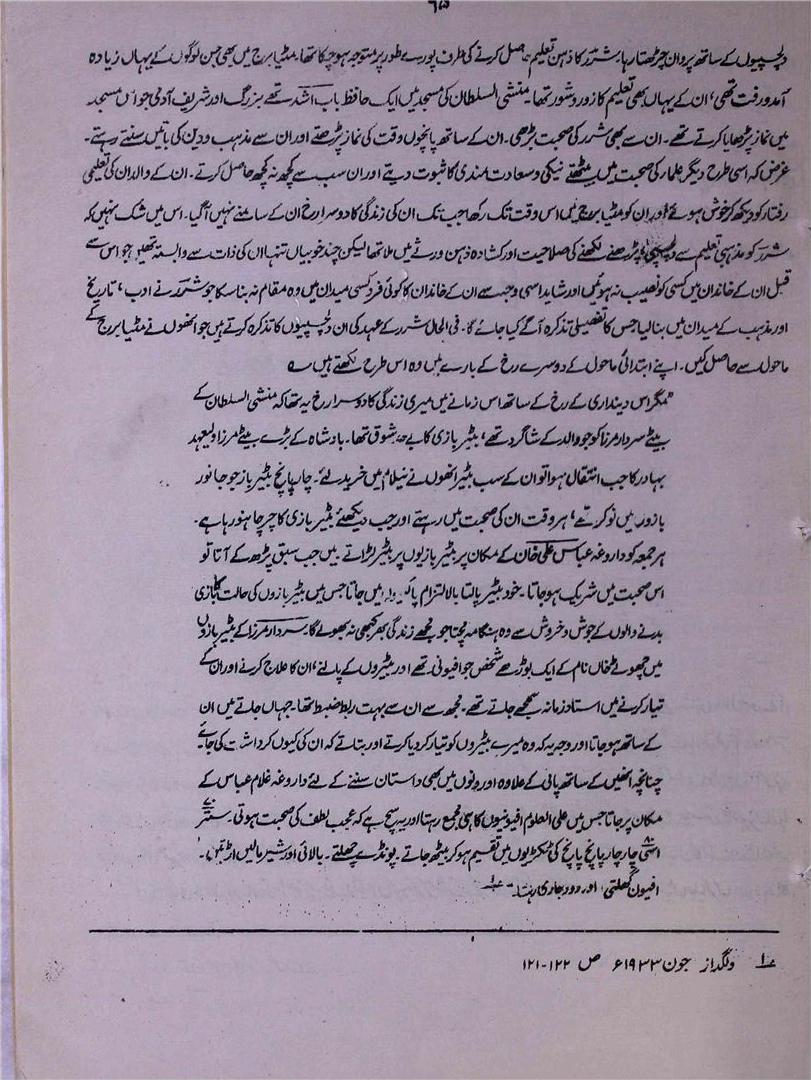 ۶۵
دلچسپیوں کے ساتھ پروان چڑھتا رہا۔ شررؔ کا ذہن تعلیم حاصل کرنے کی طرف پورے طور پر متوجہ ہو چکا تھا۔ مٹیا برج میں بھی جن لوگوں کے یہاں زیادہ
آمد و رفت تھی، ان کے یہاں بھی تعلیم کا زور و شور تھا۔ منشی السلطان کی مسجد میں ایک حافظ باب اشد تھے بزرگ اور شریف آدمی جو اس مسجد
میں نماز پڑھایا کرتے تھے۔ ان سے بھی شرر کی صحبت بڑھی۔ ان کے ساتھ پانچوں وقت کی نماز پڑھتے اور ان سے مذہب و دین کی باتیں سنتے رہتے۔
غرض کہ اسی طرح دیگر علماء کی صحبت میں بیٹھتے نیکی و سعادت مندی کا ثبوت دیتے اور ان سب سے کچھ نہ کچھ حاصل کرتے۔ ان کے والد ان کی تعلیمی
رفتار کو دیکھ کر خوش ہوئے اور ان کو مٹیا برج میں اس وقت تک رکھا جب تک ان کی زندگی کا دوسرا رخ ان کے سامنے نہیں آگیا۔ اس میں شک نہیں کہ
شررؔ کو مذہبی تعلیم سے دلچسپی پڑھنے لکھنے کی صلاحیت اور کشادہ ذہن ورثے میں ملا تھا لیکن چند خوبیاں تنہا ان کی ذات سے وابستہ تھیں جو اس سے
قبل ان کے خاندان میں کسی کو نصیب نہ ہوئیں اور شاید اسی وجہ سے ان کے خاندان کا کوئی فرد کسی میدان میں وہ مقام نہ بنا سکا جو شررؔ نے ادب، تاریخ
اور مذہب کے میدان میں بنا لیا جس کا تفصیلی تذکرہ آگے کیا جائے گا۔ فی الحال شرر کے عہد کی ان دلچسپیوں کا تذکرہ کرتے ہیں جو انھوں نے مٹیا برج کے
ماحول سے حاصل کیں۔ اپنے ابتدائی ماحول کے دوسرے رخ کے بارے میں وہ اس طرح لکھتے ہیں ؎
"مگر اس دینداری کے رخ کے ساتھ اس زمانے میں میری زندگی کا دوسرا رخ یہ تھا کہ منشی السلطان کے
بیٹے سردار مرزا کو جو والد کے شاگرد تھے، بٹیر بازی کا بے حد شوق تھا۔ بادشاہ کے بڑے بیٹے مرزا ولیعہد
بہادر کا جب انتقال ہوا تو ان کے سب بٹیر انھوں نے نیلام میں خرید لئے۔ چار پانچ بٹیر باز جو جانور
بازوں میں نوکر تھے، ہر وقت ان کی صحبت میں رہتے اور جب دیکھئے بٹیر بازی کا چرچا ہو رہا ہے۔
ہر جمعہ کو داروغہ عباس علی خان کے مکان پر بٹیر بازیوں پر بٹیر لڑاتے۔ میں جب سبق پڑھ کے آتا تو
اس صحبت میں شریک ہو جاتا۔ خود بٹیر پالتا بالالتزام پالیوں میں جاتا جس میں بٹیر بازوں کی حالت بازی
بدنے والوں کے جوش و خروش سے وہ ہنگامہ مچتا جو مجھے زندگی بھر کبھی نہ بھولے گا۔ سردار مرزا کے بٹیر بازوں
میں چھوٹے خاں نام کے ایک بوڑھے شخص جو افیونی تھے اور بٹیروں کے پالنے، ان کا علاج کرنے اور ان کے
تیار کرنے میں استاد زمانہ سمجھے جاتے تھے۔ مجھ سے ان سے بہت ربط ضبط تھا۔ جہاں جاتے میں ان
کے ساتھ ہو جاتا اور وجہ یہ کہ وہ میرے بٹیروں کو تیار کر دیا کرتے اور بتاتے کہ ان کی کیوں کر داشت کی جائے
چنانچہ انھیں کے ساتھ پالی کے علاوہ اور دنوں میں بھی داستان سننے کے لئے داروغہ غلام عباس کے
مکان پر جاتا جس میں علی العلوم افیونیوں کا ہی مجمع رہتا اور یہ سچ ہے کہ عجب لطف کی صحبت ہوتی۔ ستر ۷۰
۸۰ اسّی چار چار پانچ پانچ کی ٹکڑیوں میں تقسیم ہو کر بیٹھ جاتے۔ پونڈے چھلتے۔ بالائی اور شیرمالیں اڑتیں۔
افیون گھلتی، اور دور جاری رہتا۔" ۱
۱ دلگداز جون ۱۹۳۳ء ص ۱۲۲-۱۲۱